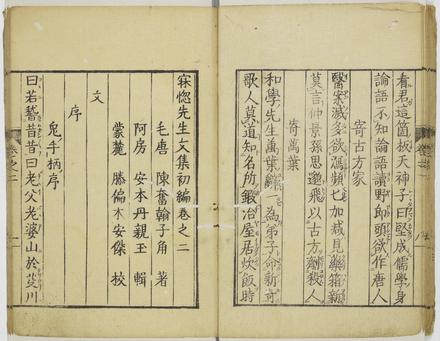 看君這箇板天神子曰堅成儒學身
論語不知論語讀野郎頭欲作唐人
寄古方家
醫案減多欲頻匕加減見藥箱新
莫言仲景孫思邈飛以古方劑殺人
寄萬葉
和學先生萬葉一為弟子命新可
歌人莫道知名所鍛冶屋居炊飯時
寐惚先生文集初編卷之二
毛唐 陳奮翰子角 著
阿房 安本丹親玉 輯
蒙籠 滕偏木安傑 校
文
序
兔手柄序
曰若稽昔昔曰老父老婆山於芟川
卷之二